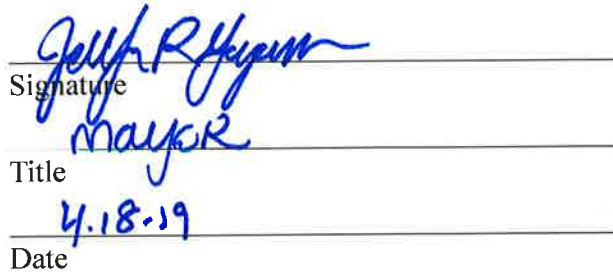 Signature
MAYOR
Title
4.18.19
Date